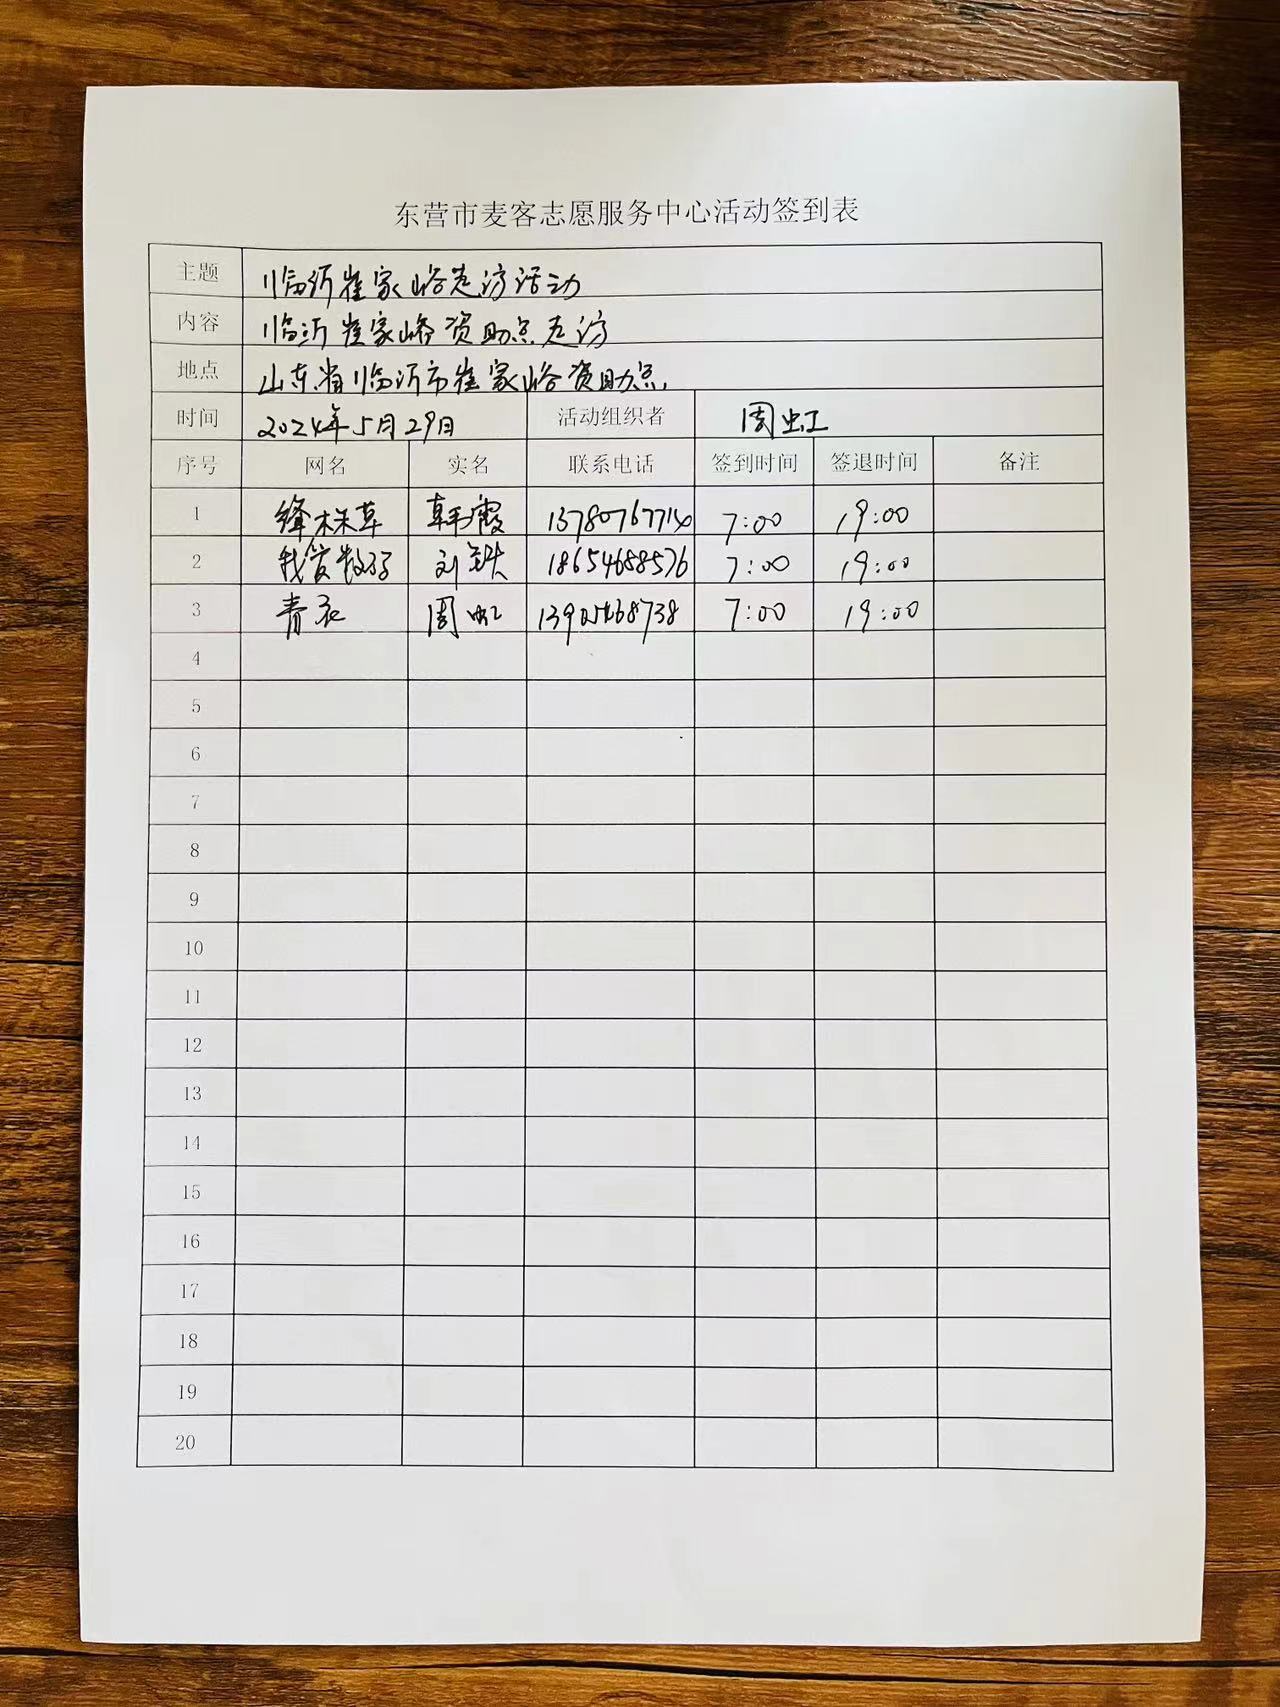 东营市麦客志愿服务中心活动签到表
主题 临沂崔家峪走访活动
内容 临沂崔家峪资助点走访
地点 山东省临沂市崔家峪资助点
时间 2024年5月29日 活动组织者 周虹
序号 网名 实名 联系电话 签到时间 签退时间 备注
1 绛株草 韩霞 13780767714 7:00 19:00
2 我爱 刘 18654688576 7:00 19:00
3 青衣 周虹 7:00 19:00
4
5
6
7
8
9
10
11
12
13
14
15
16
17
18
19
20